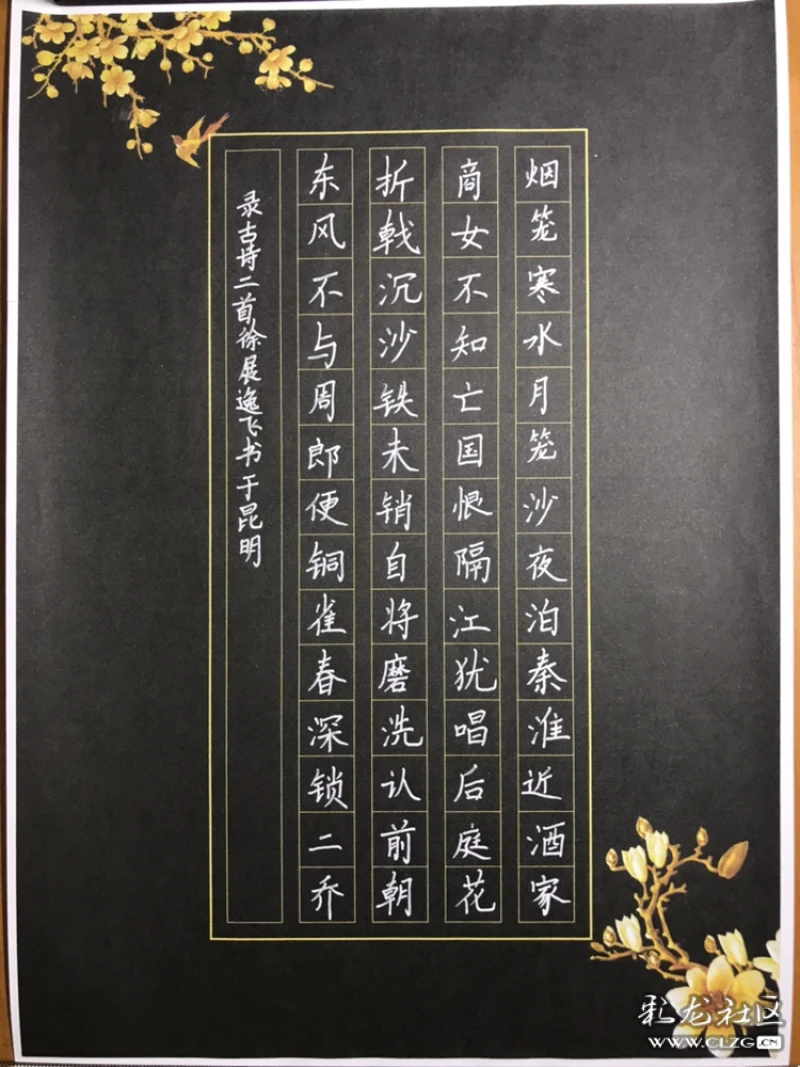 烟笼寒水月笼沙夜泊秦淮近酒家
商女不知亡国恨隔江犹唱后庭花
折戟沉沙铁未销自将磨洗认前朝
东风不与周郎便铜雀春深锁二乔
录古诗二首徐展逸飞书于昆明
彩龙社区
WWW.CLZG.CN